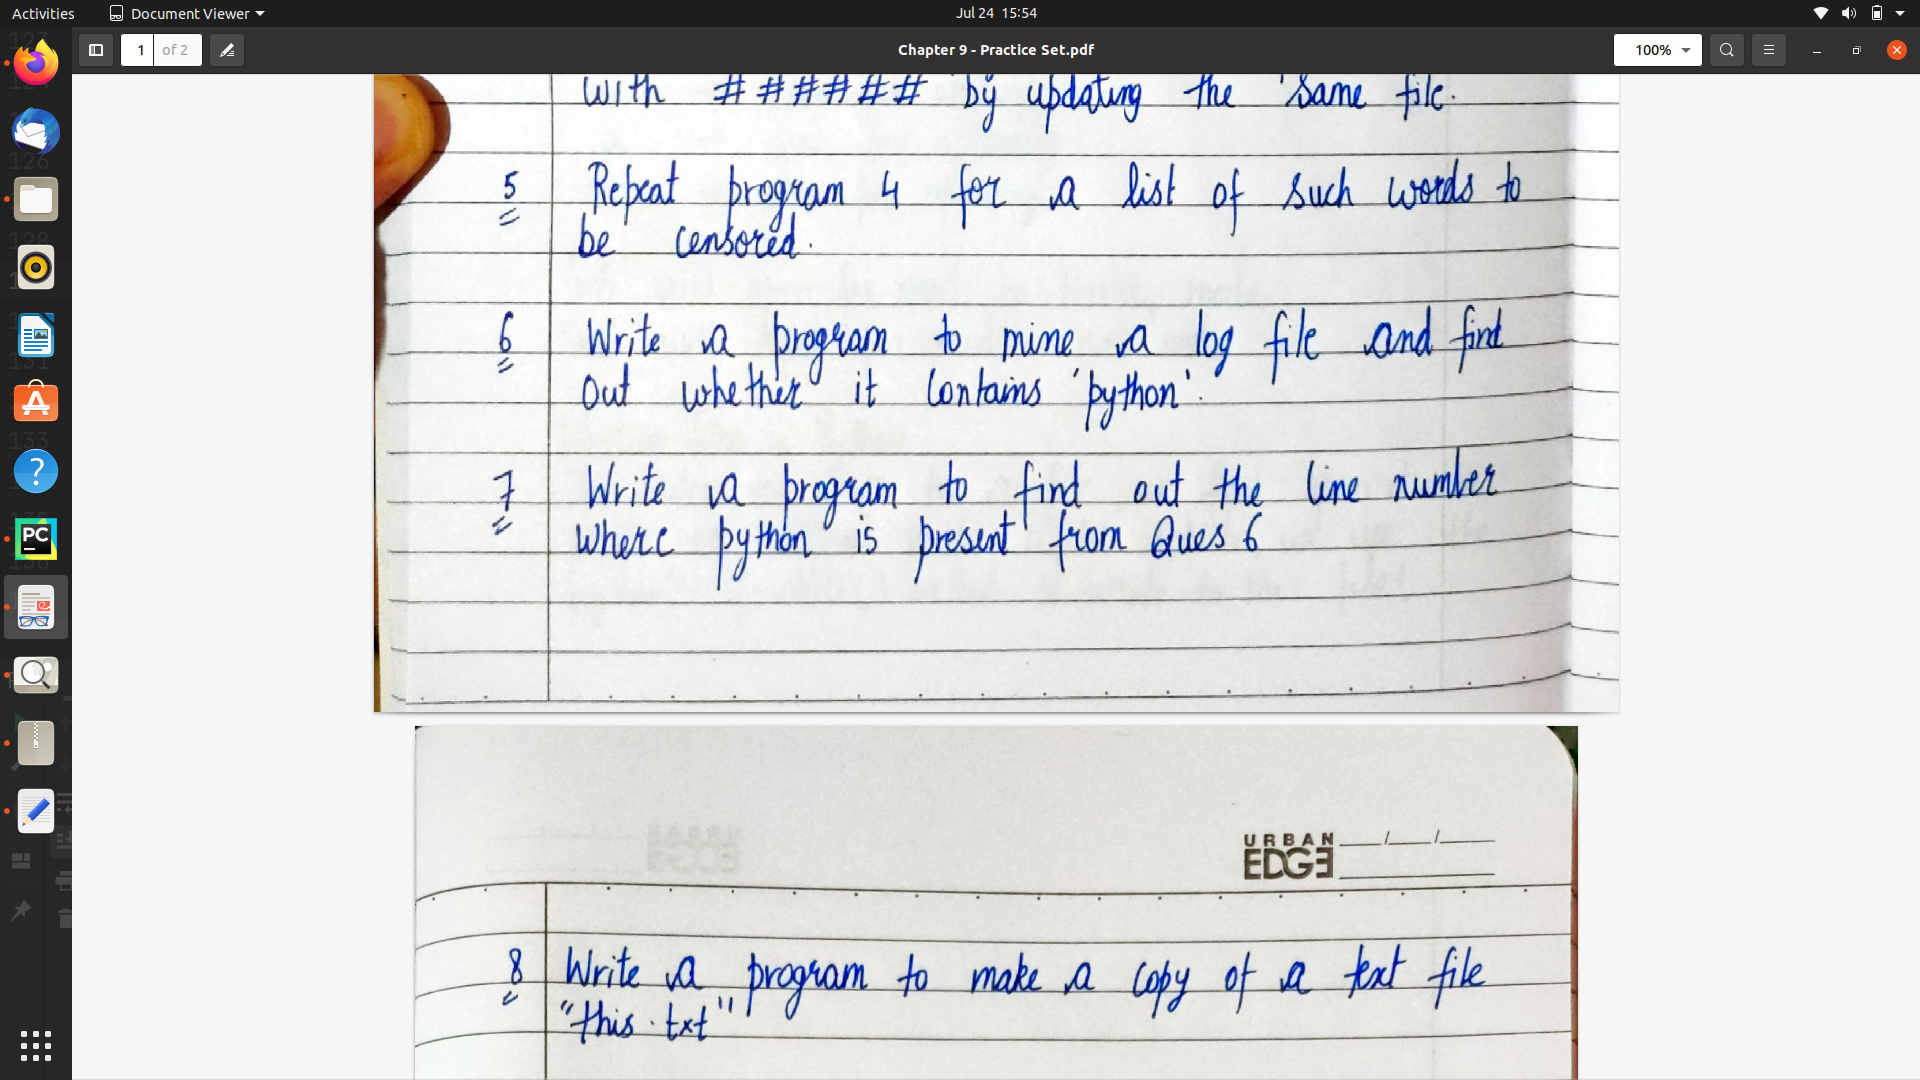 Activities
Document Viewer
Jul 24 15:54
1 of 2
Chapter 9 - Practice Set.pdf
100%
with ###### by updating the same file.
5 Repeat program 4 for a list of such words to
be censored.
6 Write a program to mine a log file and find
out whether it contains 'python'.
7 Write a program to find out the line number
where python is present from Ques 6
URBAN __/__/__
EDGE
8 Write a program to make a copy of a text file
"this.txt"
PC